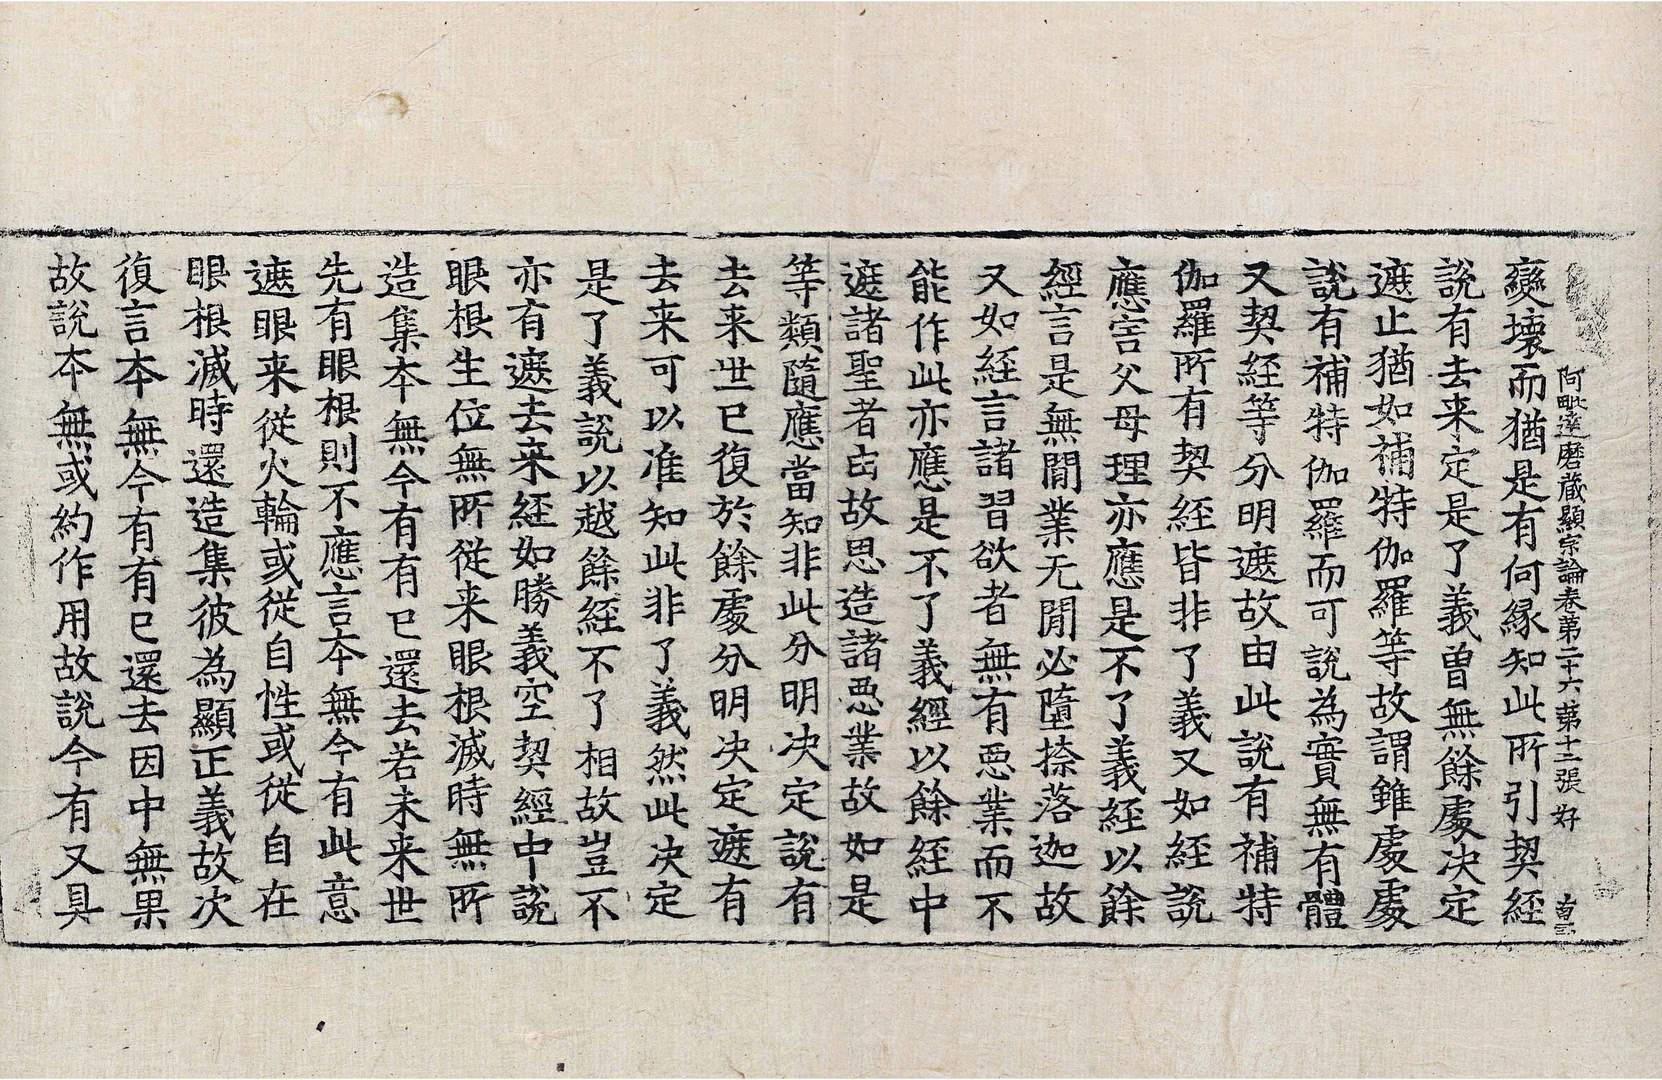 阿毗達磨蔵顯宗論卷第二十六 第十二張 好
變壞而猶是有何縁知此所引契經
說有去来定是了義曽無餘處决定
遮止猶如補特伽羅等故謂雖處處
說有補特伽羅而可說為實無有體
又契經等分明遮故由此說有補特
伽羅所有契經皆非了義又如經說
應害父母理亦應是不了義經以餘
經言是無間業无間必墮捺落迦故
又如經言諸習欲者無有惡業而不
能作此亦應是不了義經以餘經中
遮諸聖者由故思造諸惡業故如是
等類隨應當知非此分明决定說有
去来世已復於餘處分明决定遮有
去来可以准知此非了義然此决定
是了義說以越餘經不了相故豈不
亦有遮去来經如勝義空契經中說
眼根生位無所從来眼根滅時無所
造集本無今有有已還去若未来世
先有眼根則不應言本無今有此意
遮眼来從火輪或從自性或從自在
眼根滅時還造集彼為顯正義故次
復言本無今有有已還去因中無果
故說本無或約作用故說今有又具